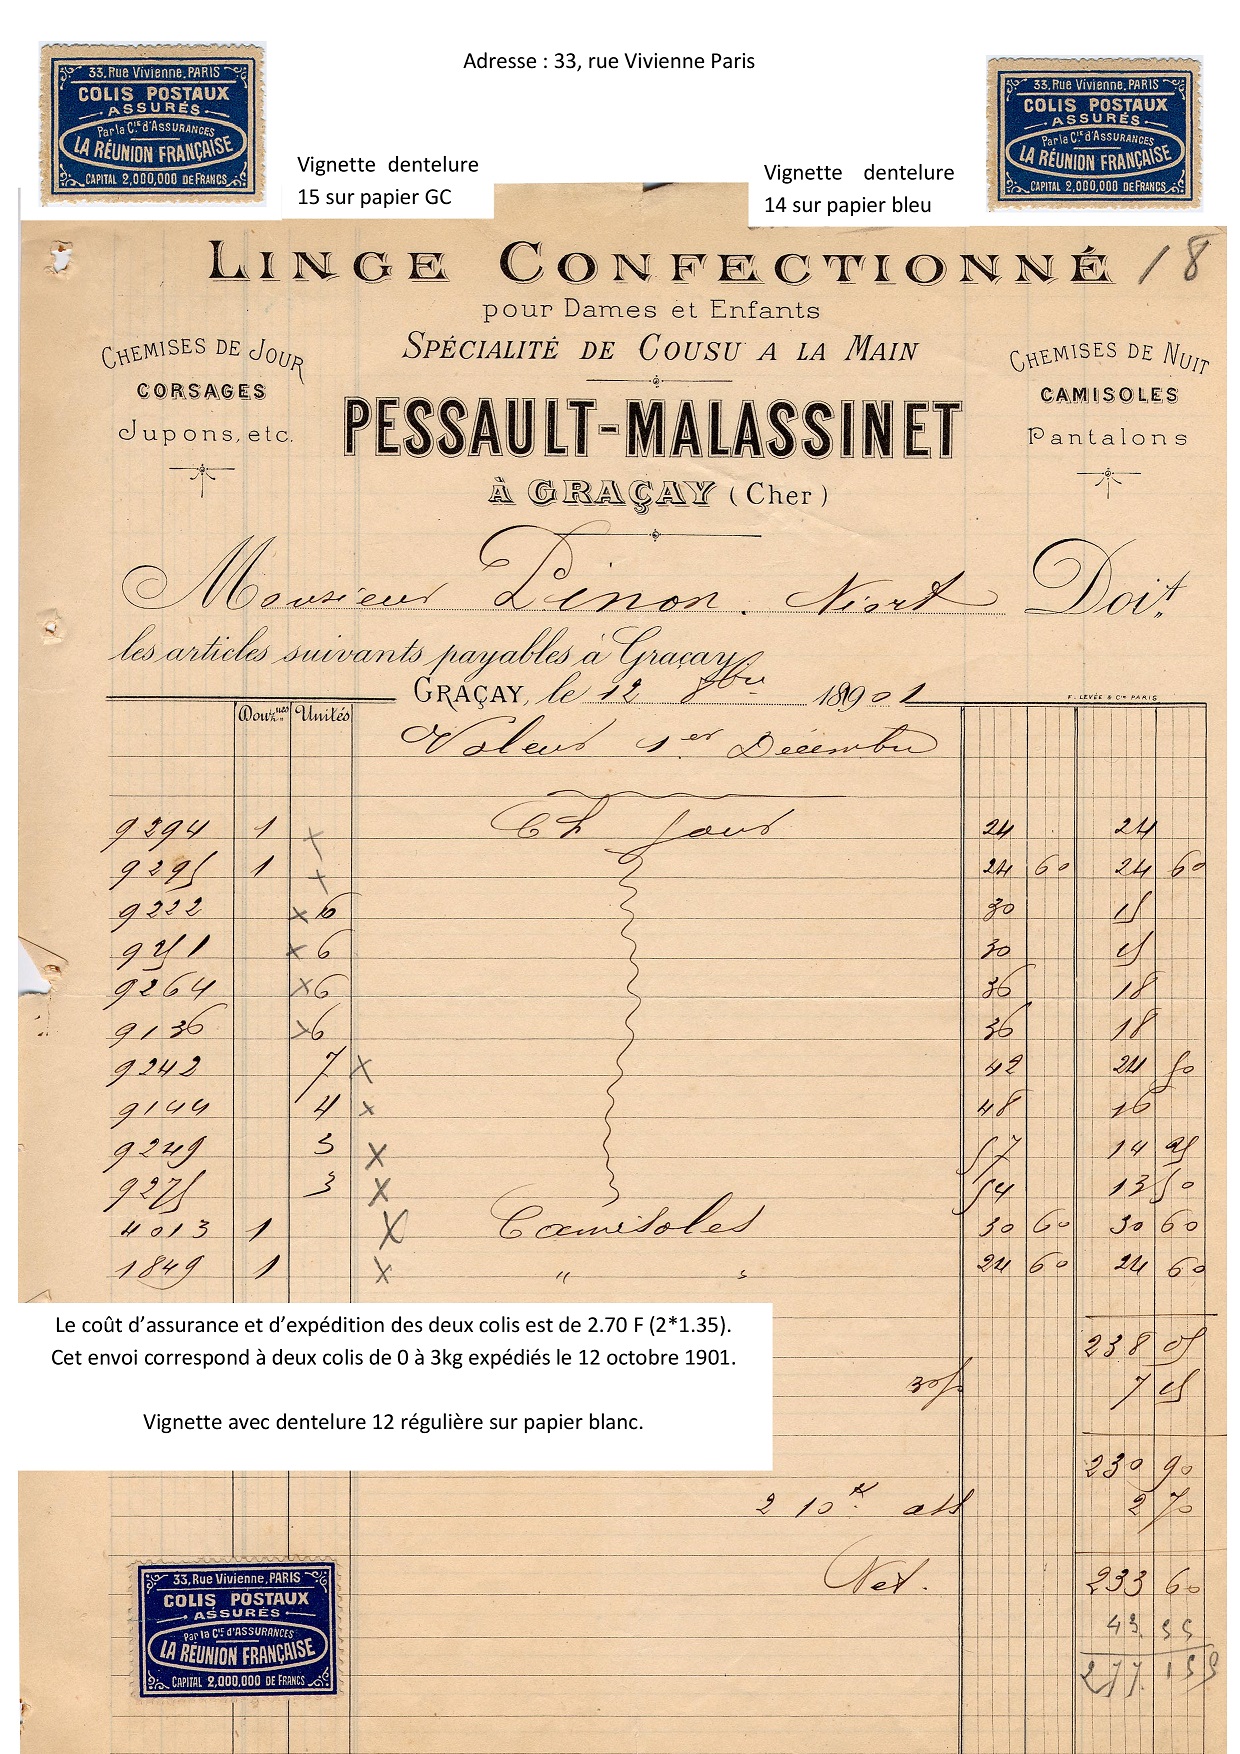 33, Rue Vivienne. PARIS
COLIS POSTAUX
ASSURÉS
Par la Cie d'ASSURANCES
LA RÉUNION FRANÇAISE
CAPITAL 2,000,000 DE FRANCS
Adresse : 33, rue Vivienne Paris
33, Rue Vivienne. PARIS
COLIS POSTAUX
ASSURÉS
Par la Cie d'ASSURANCES
LA RÉUNION FRANÇAISE
CAPITAL 2,000,000 DE FRANCS
Vignette dentelure
15 sur papier GC
Vignette dentelure
14 sur papier bleu
LINGE CONFECTIONNÉ 18
pour Dames et Enfants
SPÉCIALITÉ DE COUSU A LA MAIN
CHEMISES DE JOUR
CORSAGES
Jupons, etc.
CHEMISES DE NUIT
CAMISOLES
Pantalons
PESSAULT-MALASSINET
À GRAÇAY (Cher)
Monsieur Pinon. Niort Doit
les articles suivants payables à Graçay
GRAÇAY, le 12 8bre 1901
F. LEVÉE & Cie PARIS
Douz.nes Unités
Valeur 1er Décembre
9294 1 Ch jour 24 24
9295 1 24 60 24 60
9222 6 30 15
9251 6 30 15
9264 6 36 18
9136 6 36 18
9242 7 42 24 50
9144 4 48 16
9249 3 57 14 25
9275 3 54 13 50
4013 1 Camisoles 30 60 30 60
1849 1 " " 24 60 24 60
Le coût d'assurance et d'expédition des deux colis est de 2.70 F (2*1.35).
Cet envoi correspond à deux colis de 0 à 3kg expédiés le 12 octobre 1901.
Vignette avec dentelure 12 régulière sur papier blanc.
238 05
7 15
230 90
2 10 ass 2 70
Net. 233 60
43.55
277.155
33, Rue Vivienne, PARIS
COLIS POSTAUX
ASSURÉS
Par la Cie D'ASSURANCES
LA RÉUNION FRANÇAISE
CAPITAL 2,000,000 DE FRANCS